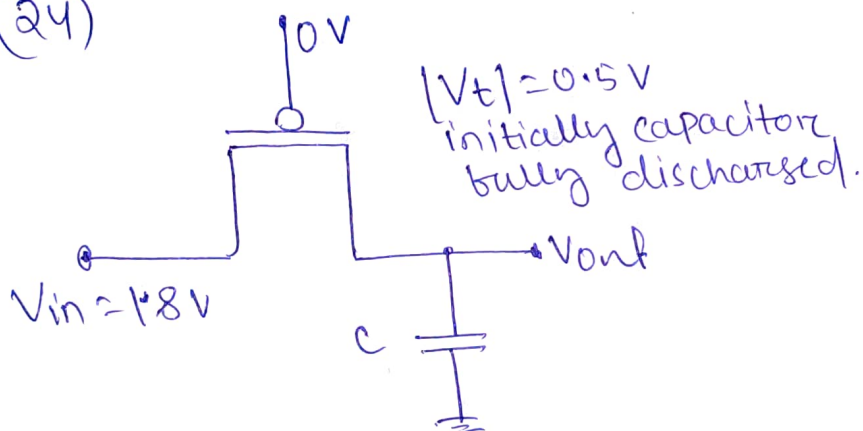 (24)
0V
|Vt| = 0.5V
initially capacitor
fully discharged.
Vout
Vin = 1.8V
C